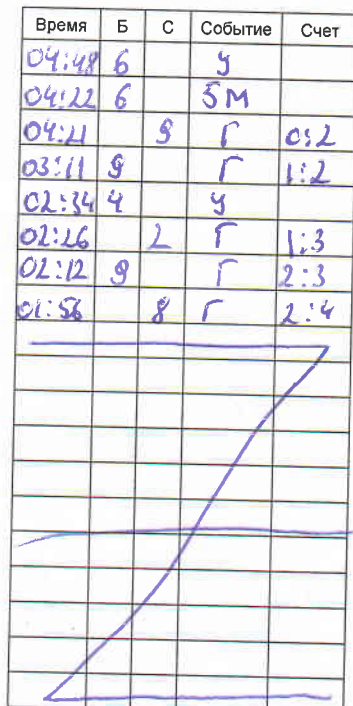 Время Б С Событие Счет
04:48 6 У
04:22 6 5М
04:21 9 Г 0:2
03:11 9 Г 1:2
02:34 4 У
02:26 2 Г 1:3
02:12 9 Г 2:3
01:56 8 Г 2:4